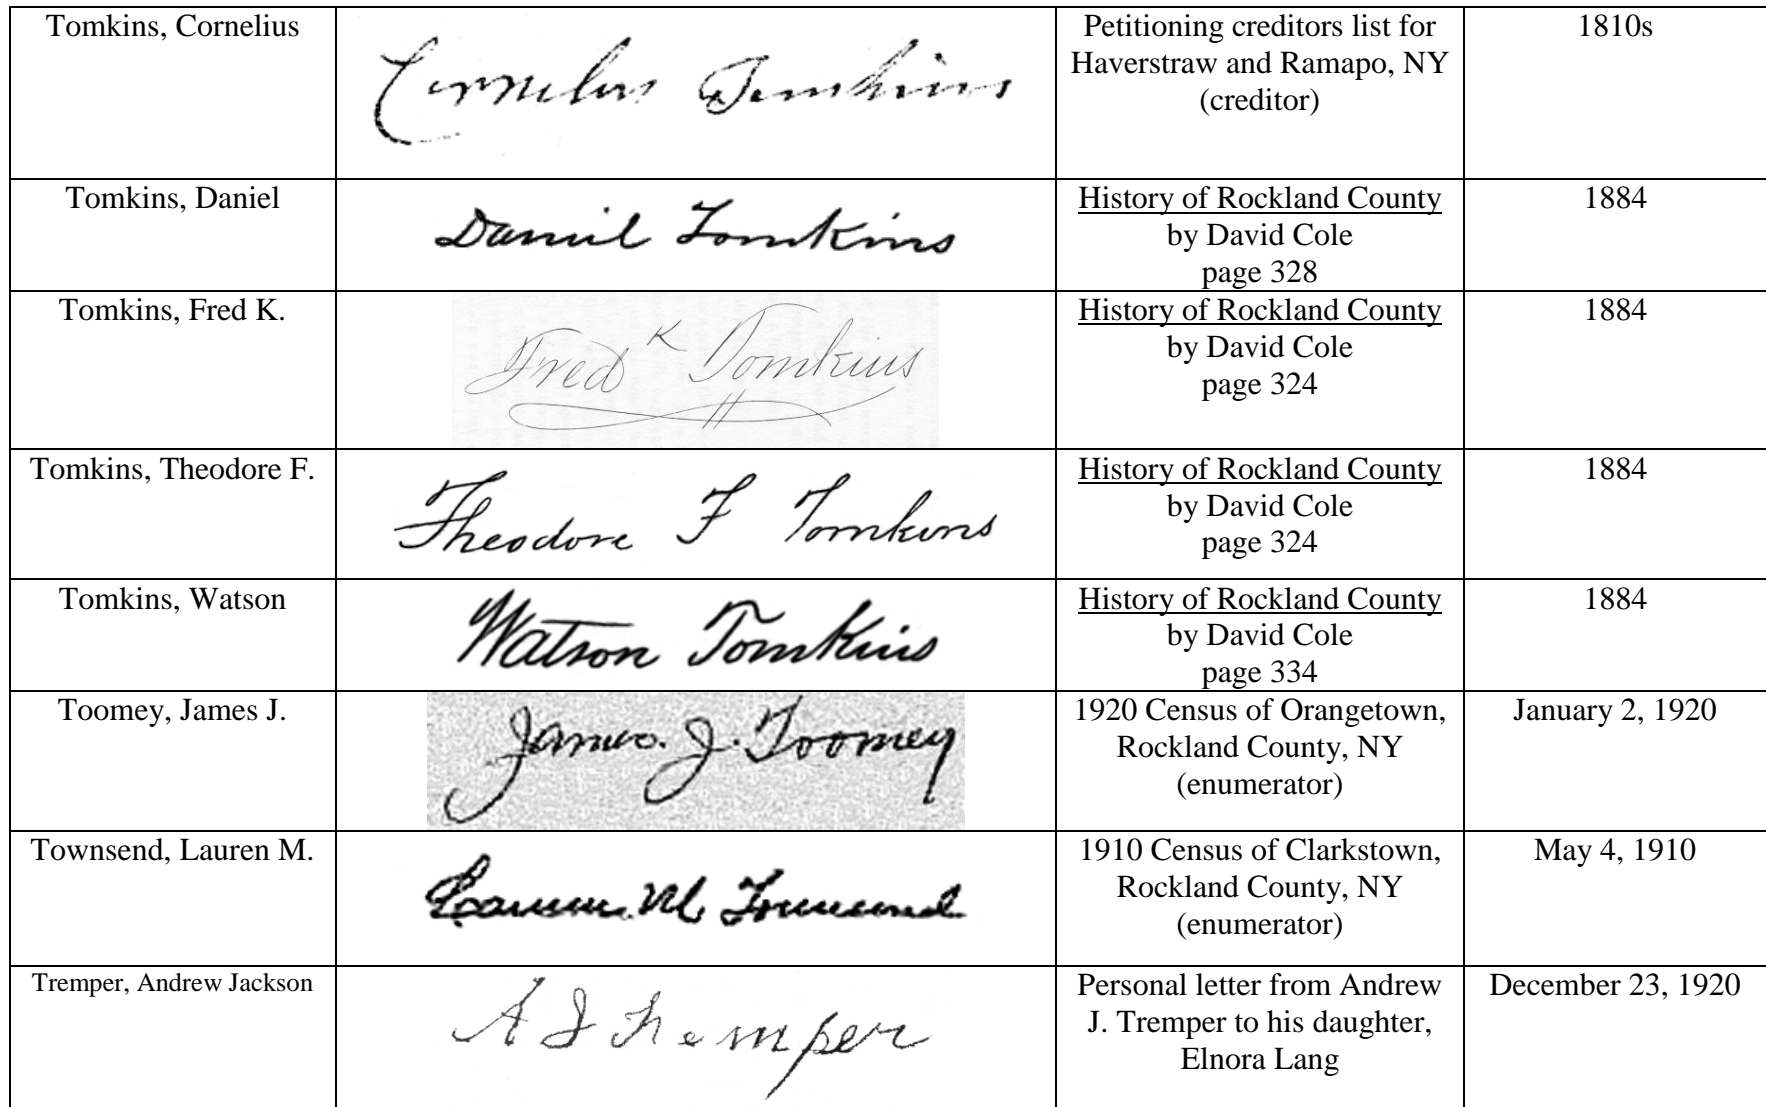 Tomkins, Cornelius
Cornelius Tomkins
Petitioning creditors list for
Haverstraw and Ramapo, NY
(creditor)
1810s
Tomkins, Daniel
Daniel Tomkins
History of Rockland County
by David Cole
page 328
1884
Tomkins, Fred K.
Fred K Tomkins
History of Rockland County
by David Cole
page 324
1884
Tomkins, Theodore F.
Theodore F Tomkins
History of Rockland County
by David Cole
page 324
1884
Tomkins, Watson
Watson Tomkins
History of Rockland County
by David Cole
page 334
1884
Toomey, James J.
James. J. Toomey
1920 Census of Orangetown,
Rockland County, NY
(enumerator)
January 2, 1920
Townsend, Lauren M.
Lauren M Townsend
1910 Census of Clarkstown,
Rockland County, NY
(enumerator)
May 4, 1910
Tremper, Andrew Jackson
A J Tremper
Personal letter from Andrew
J. Tremper to his daughter,
Elnora Lang
December 23, 1920